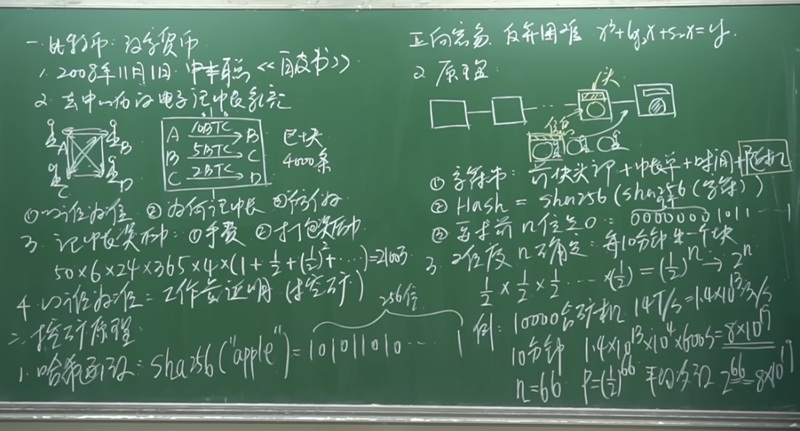 一.比特币:数字货币
1.2008年11月1日.中本聪《白皮书》
2.去中心化的电子记账系统
A B C D
A 10BTC B
B 5BTC C
C 2BTC D
区块
4000条
①以谁为准 ②为何记账 ③防伪
3.记账奖励:①手续费 ②打包奖励
50×6×24×365×4×(1+1/2+(1/2)²+…)=2100万
4.以谁为准:工作量证明(挖矿)
二.挖矿原理:
1.哈希函数:sha256("apple")=101011010……1
256位
正向容易 反向困难
2.原理
头
信息
①字符串:前块头部+账单+时间+随机
②Hash=sha256(sha256(字符串))
③要求前n位是0:0000000 1011…1
3.难度n确定:每10分钟出一个块
1/2×1/2×1/2…×(1/2)=(1/2)ⁿ→2ⁿ
例:10000台矿机 14T/s=1.4×10¹³次/s
10分钟 1.4×10¹³×10⁴×600s=8×10¹⁹
n=66 P=(1/2)⁶⁶ 平均次数 2⁶⁶=8×10¹⁹